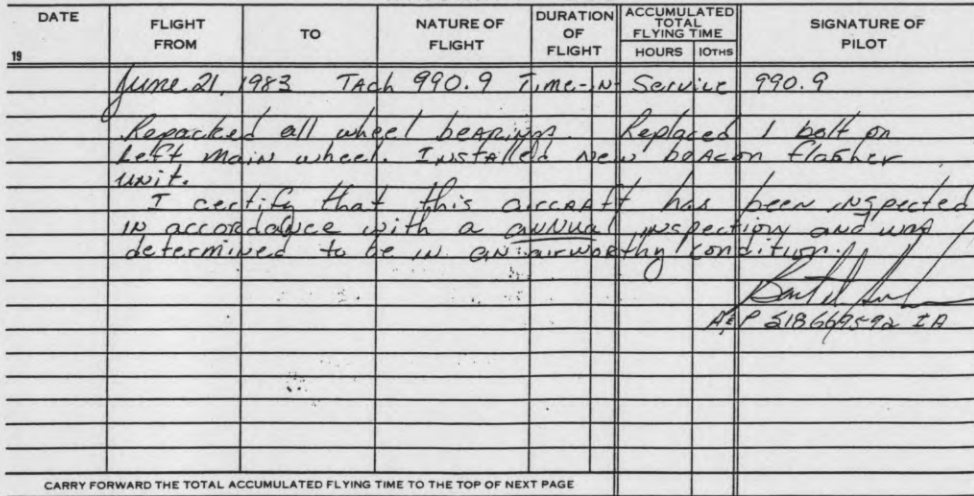 DATE FLIGHT FROM TO NATURE OF FLIGHT DURATION OF FLIGHT ACCUMULATED TOTAL FLYING TIME HOURS 10THS SIGNATURE OF PILOT
19
June 21, 1983 Tach 990.9 Time-in-Service 990.9
Repacked all wheel bearings. Replaced 1 bolt on
left main wheel. Installed new beacon flasher
unit.
I certify that this aircraft has been inspected
in accordance with a annual inspection and was
determined to be in an airworthy condition.
A&P 518669592 IA
CARRY FORWARD THE TOTAL ACCUMULATED FLYING TIME TO THE TOP OF NEXT PAGE